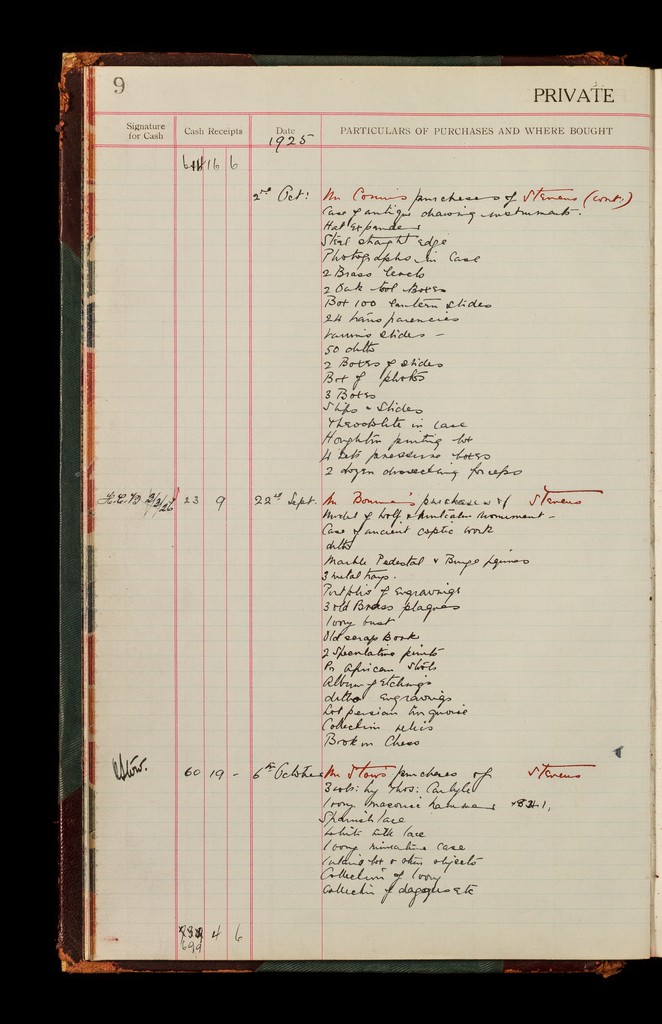 9
PRIVATE
Signature for Cash
Cash Receipts
Date
PARTICULARS OF PURCHASES AND WHERE BOUGHT
1925
16 6
2nd Oct: Mr purchases of Stevens (cont:)
Case of antique drawing instruments.
Hat Expander
Steel straight edge
Photographs in Case
2 Brass levels
2 Oak tool Boxes
Box 100 lantern slides
24 transparencies
slides -
50 ditto
2 Boxes of slides
Box of photos
3 Boxes
Slides
Theodolite in case
Houghton printing box
4 boxes
2 dozen dissecting forceps
23 9 22nd Sept. Mr purchases of Stevens
Model of Wolf & Monument -
Case of ancient coptic work
ditto
Marble Pedestal & figures
3 metal trays.
Portfolio of Engravings
3 old Brass plaques
Ivory bust
Old scrap Book
2 Speculative prints
Pr African
Album of Etchings
ditto engravings
Lot persian turquoise
Collection
Book on Chess
Stow. 60 19 - 6th October Mr Stow's purchases of Stevens
3 vols: by Thos: Carlyle
Ivory masonic hammer
Spanish lace
White silk lace
Ivory miniature case
box & other objects
Collection of Ivory
Collection of daggers etc
699 4 6